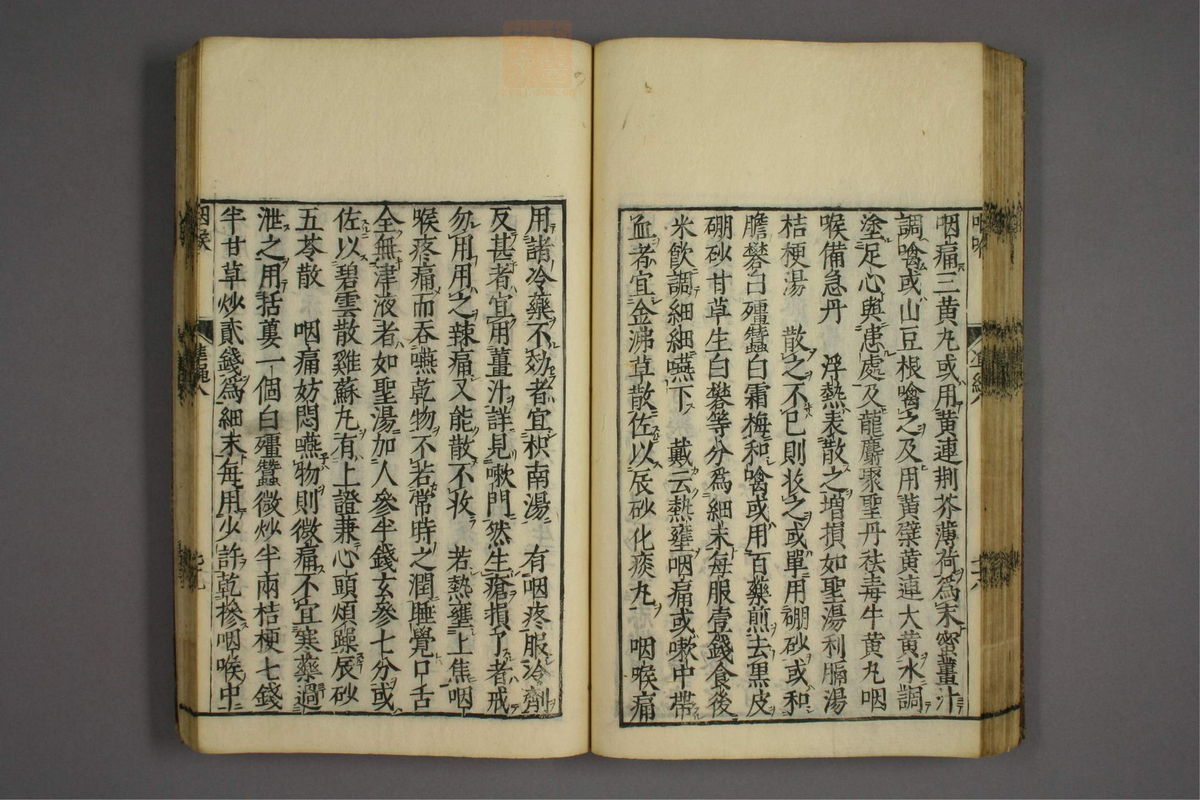 咽痛三黄丸或用黄連荆芥薄荷爲末蜜薑汁
調噙或山豆根噙之及用黄蘗黄連大黄水調
塗足心與患處及龍麝聚聖丹祛毒牛黄丸咽
喉備急丹　浮熱表散之増損如聖湯利膈湯
桔梗湯　散之不已則收之或單用硼砂或和
膽礬白殭蠶白霜梅和噙或用百藥煎去黒皮
硼砂甘草生白礬等分爲細末毎服壹錢食後
米飲調細細嚥下　戴云熱壅咽痛或嗽中帶
血者宜金沸草散佐以辰砂化痰丸　咽喉痛
用諸冷藥不効者宜枳南湯　有咽疼服冷劑
反甚者宜用薑汁詳見嗽門然生瘡損了者戒
勿用用之辣痛又能散不收　若熱壅上焦咽
喉疼痛而吞嚥乾物不若常時之潤睡覺口舌
全無津液者如聖湯加人參半錢玄參七分或
佐以碧雲散雞蘇丸有上證兼心頭煩躁辰砂
五苓散　咽痛妨悶嚥物則微痛不宜寒藥過
泄之用括蔞一個白殭蠶微炒半兩桔梗七錢
半甘草炒貳錢爲細末毎用少許乾摻咽喉中
咽喉
準繩八